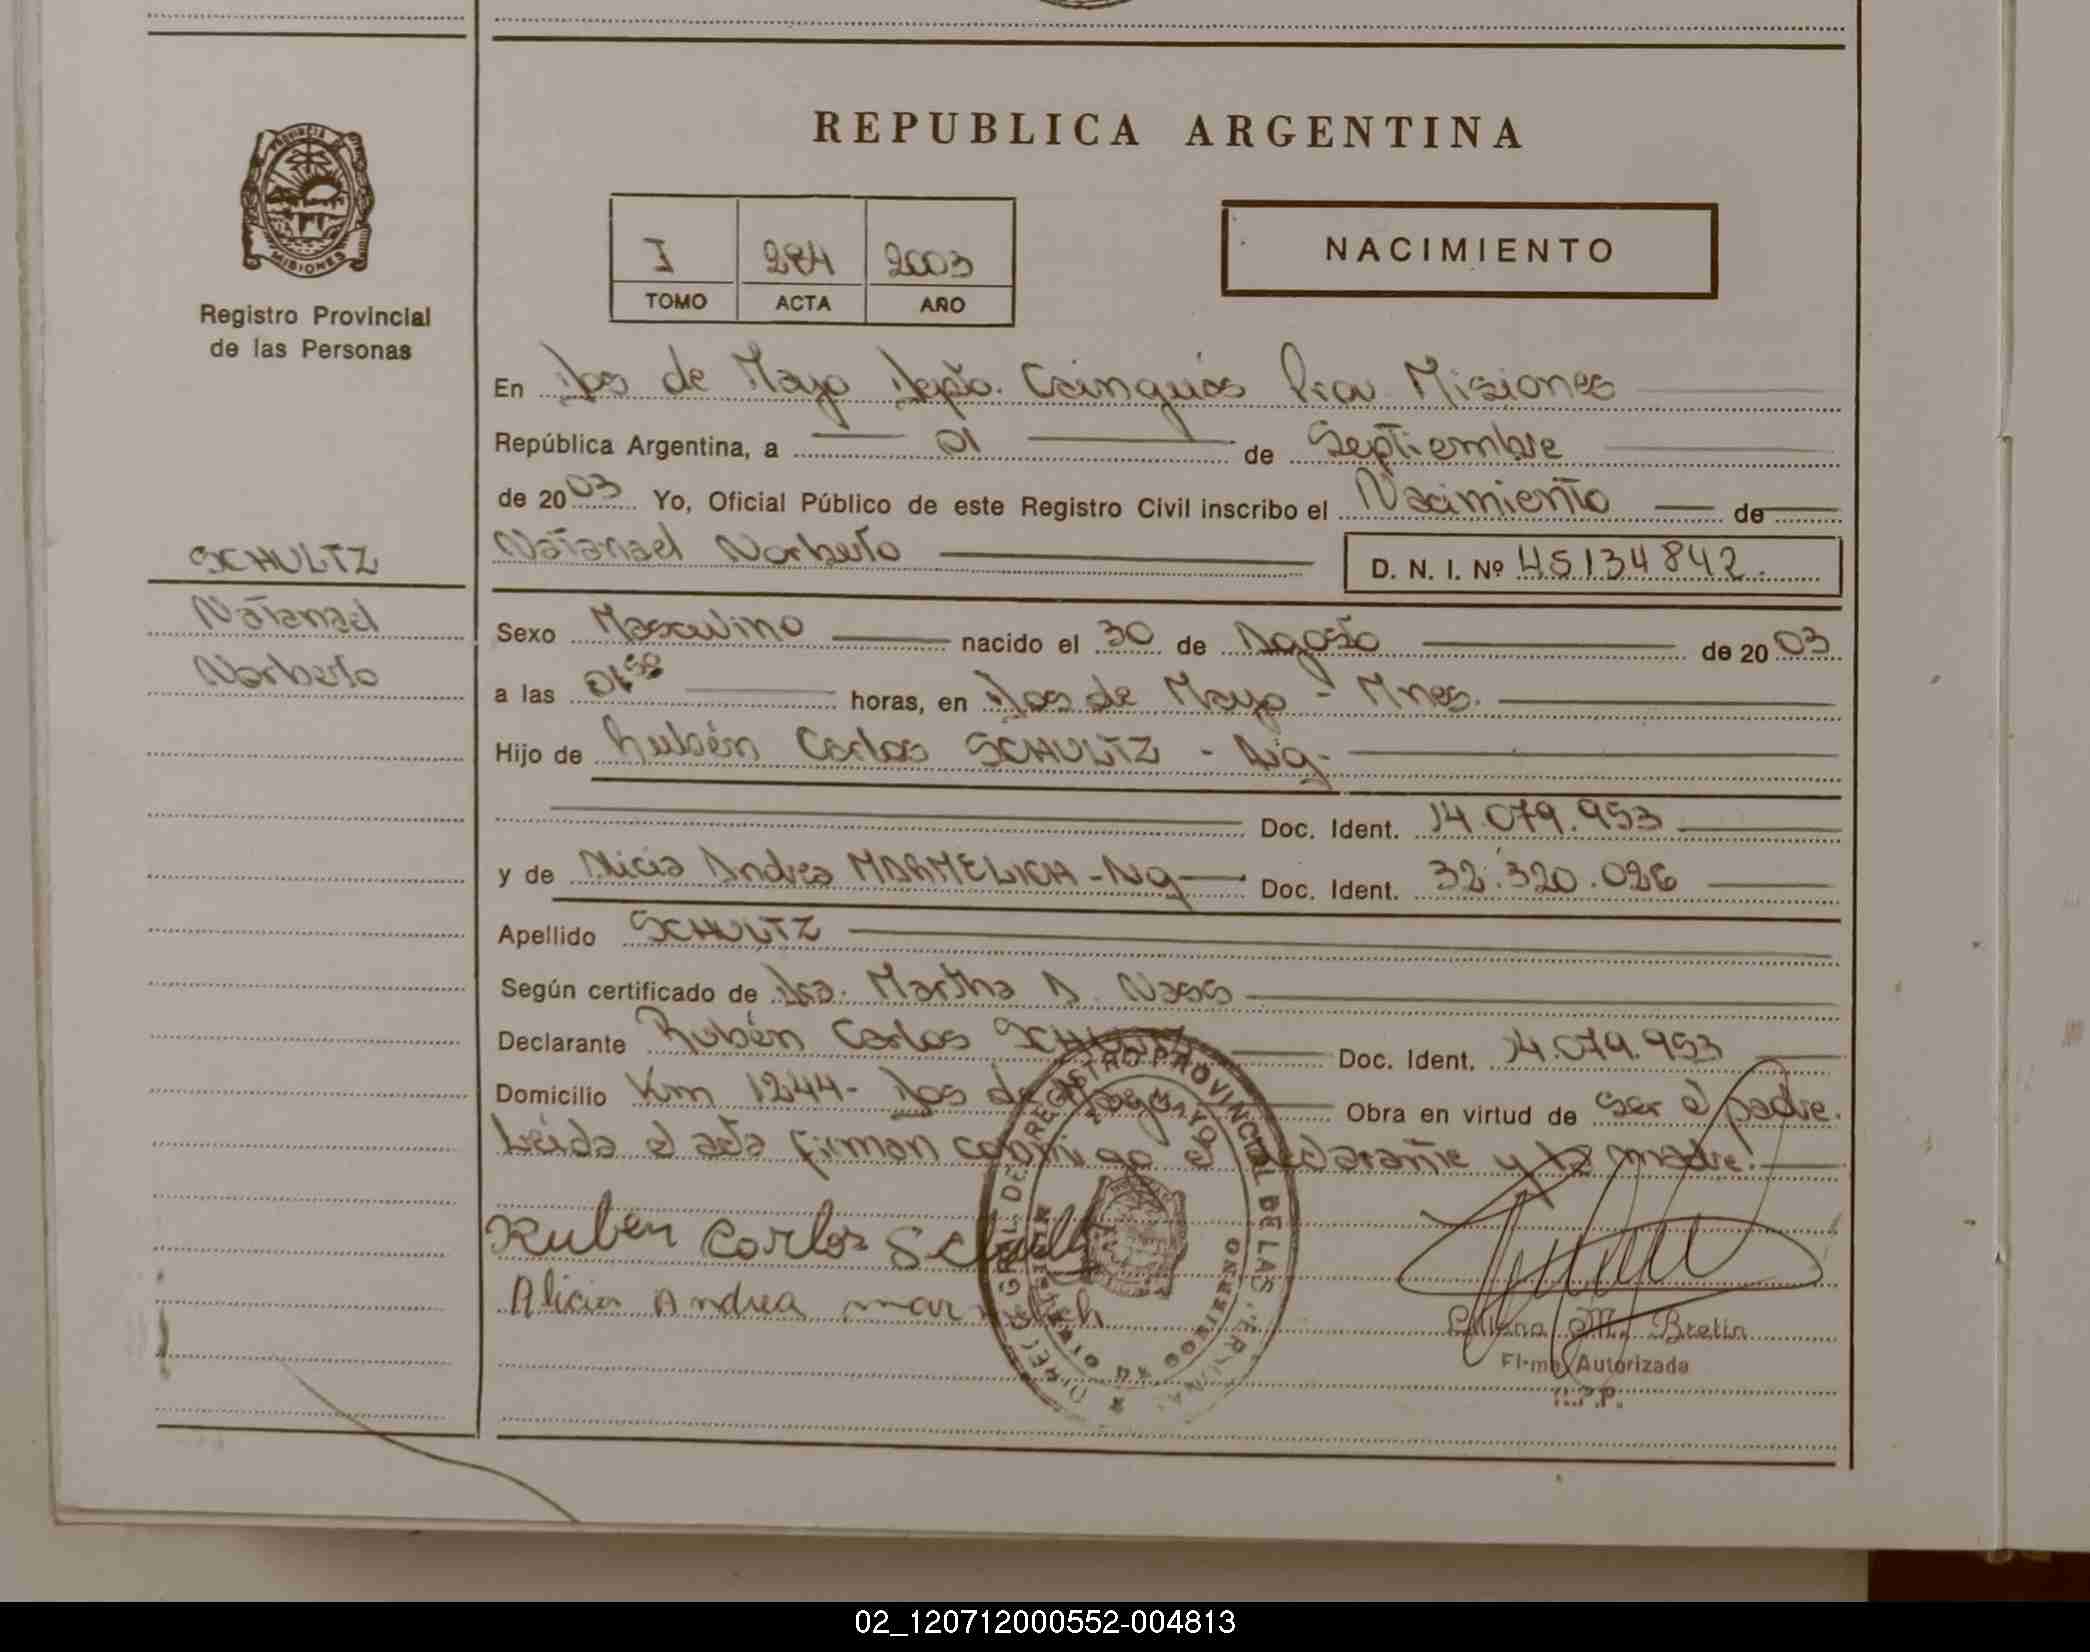 REPUBLICA ARGENTINA
PROVINCIA DE
MISIONES
Registro Provincial
de las Personas
I 284 2003
TOMO ACTA AÑO
NACIMIENTO
En Dos de Mayo Depto. Cainguás Prov. Misiones
República Argentina, a 01 de Septiembre
de 2003 Yo, Oficial Público de este Registro Civil inscribo el Nacimiento de
Natanael Norberto D. N. I. Nº 45134842.
SCHULTZ
Natanael
Norberto
Sexo Masculino nacido el 30 de Agosto de 2003
a las horas, en Dos de Mayo - Mnes.
Hijo de Rubén Carlos SCHULTZ - Arg-
Doc. Ident. 14.079.953
y de Alicia Andrea - Arg Doc. Ident. 32.320.026
Apellido SCHULTZ
Según certificado de Dra. Martha A. Nass
Declarante Rubén Carlos SCHULTZ Doc. Ident. 14.079.953
Domicilio Km 1244- Dos de Mayo Obra en virtud de ser el padre.
Leída el acta firman conmigo el declarante y la madre.
Ruben Carlos Schultz
Alicia Andrea
REGISTRO PROVINCIAL DE LAS PERSONAS
Liliana M. Bretin
Firma Autorizada
R.P.P.
02_120712000552-004813